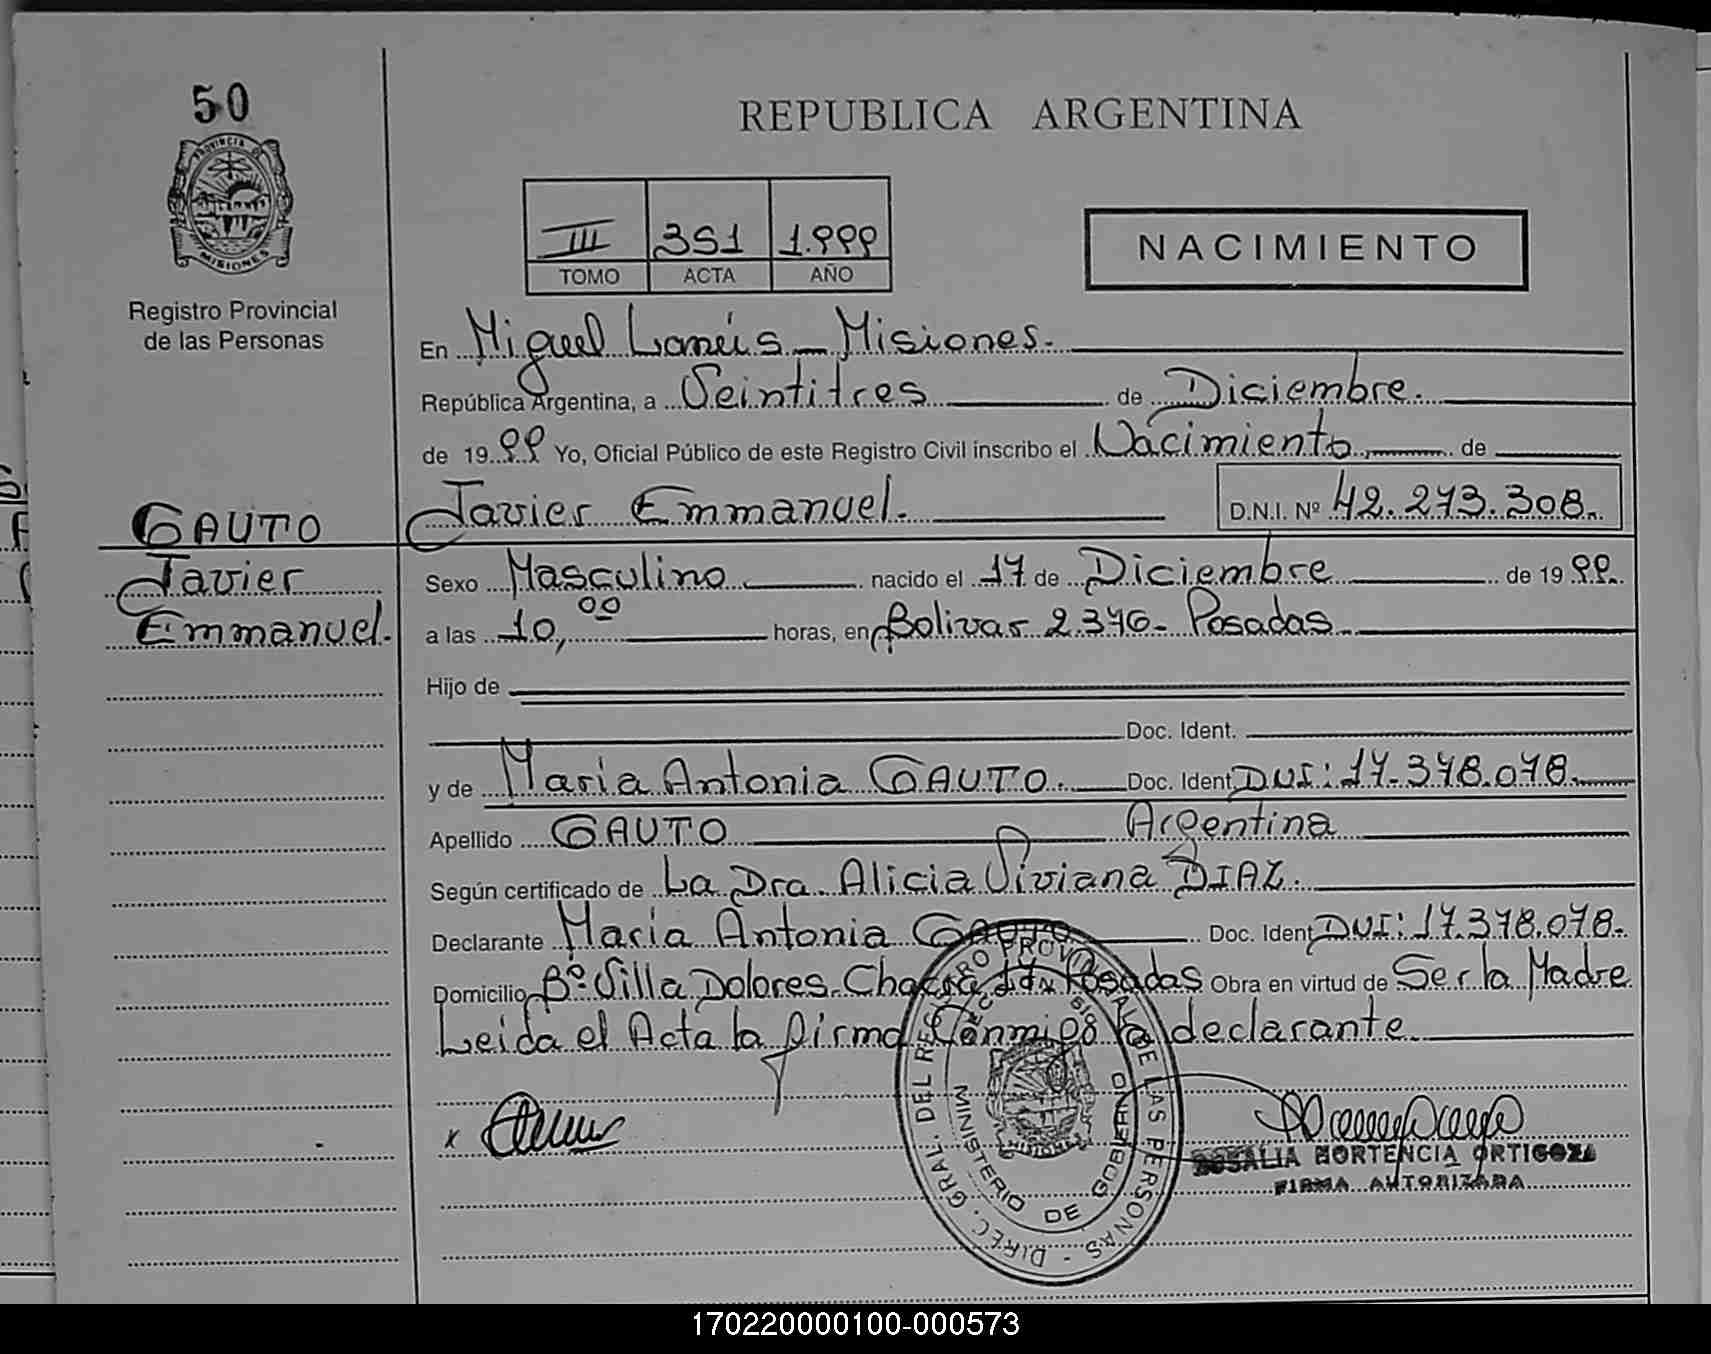 50
PROVINCIA DE
MISIONES
Registro Provincial
de las Personas
REPUBLICA ARGENTINA
III 351 1.999
TOMO ACTA AÑO
NACIMIENTO
En Miguel Lanús - Misiones.
República Argentina, a Veintitres de Diciembre.
de 19 99 Yo, Oficial Público de este Registro Civil inscribo el Nacimiento de
GAUTO Javier Emmanuel. D.N.I. Nº 42.273.308.
Javier Sexo Masculino nacido el 17 de Diciembre de 19 99.
Emmanuel. a las 10,00 horas, en Bolivar 2.376- Posadas
Hijo de
Doc. Ident.
y de Maria Antonia GAUTO. Doc. Ident. DNI: 17.378.078.
Apellido GAUTO Argentina
Según certificado de La Dra. Alicia Viviana DIAZ.
Declarante Maria Antonia GAUTO Doc. Ident. DNI: 17.378.078.
Domicilio Bº Villa Dolores- Chacra Posadas Obra en virtud de Ser la Madre
Leida el Acta la firma Conmigo la declarante
x
DIREC. GRAL. DEL REGISTRO PROVINCIAL DE LAS PERSONAS -
MINISTERIO DE GOBIERNO
MISIONES
ROSALIA HORTENCIA ORTIGOZA
FIRMA AUTORIZADA
170220000100-000573